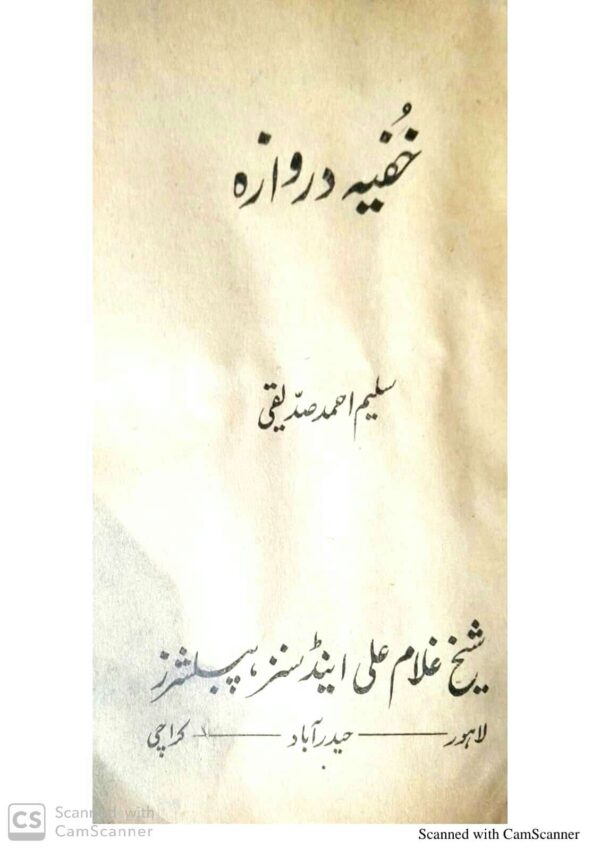 خُفیہ دروازہ
سلیم احمد صدّیقی
شیخ غلام علی اینڈ سنز، پبلشرز
لاہور ——— حیدر آباد ——— کراچی
CS Scanned with
CamScanner
Scanned with CamScanner